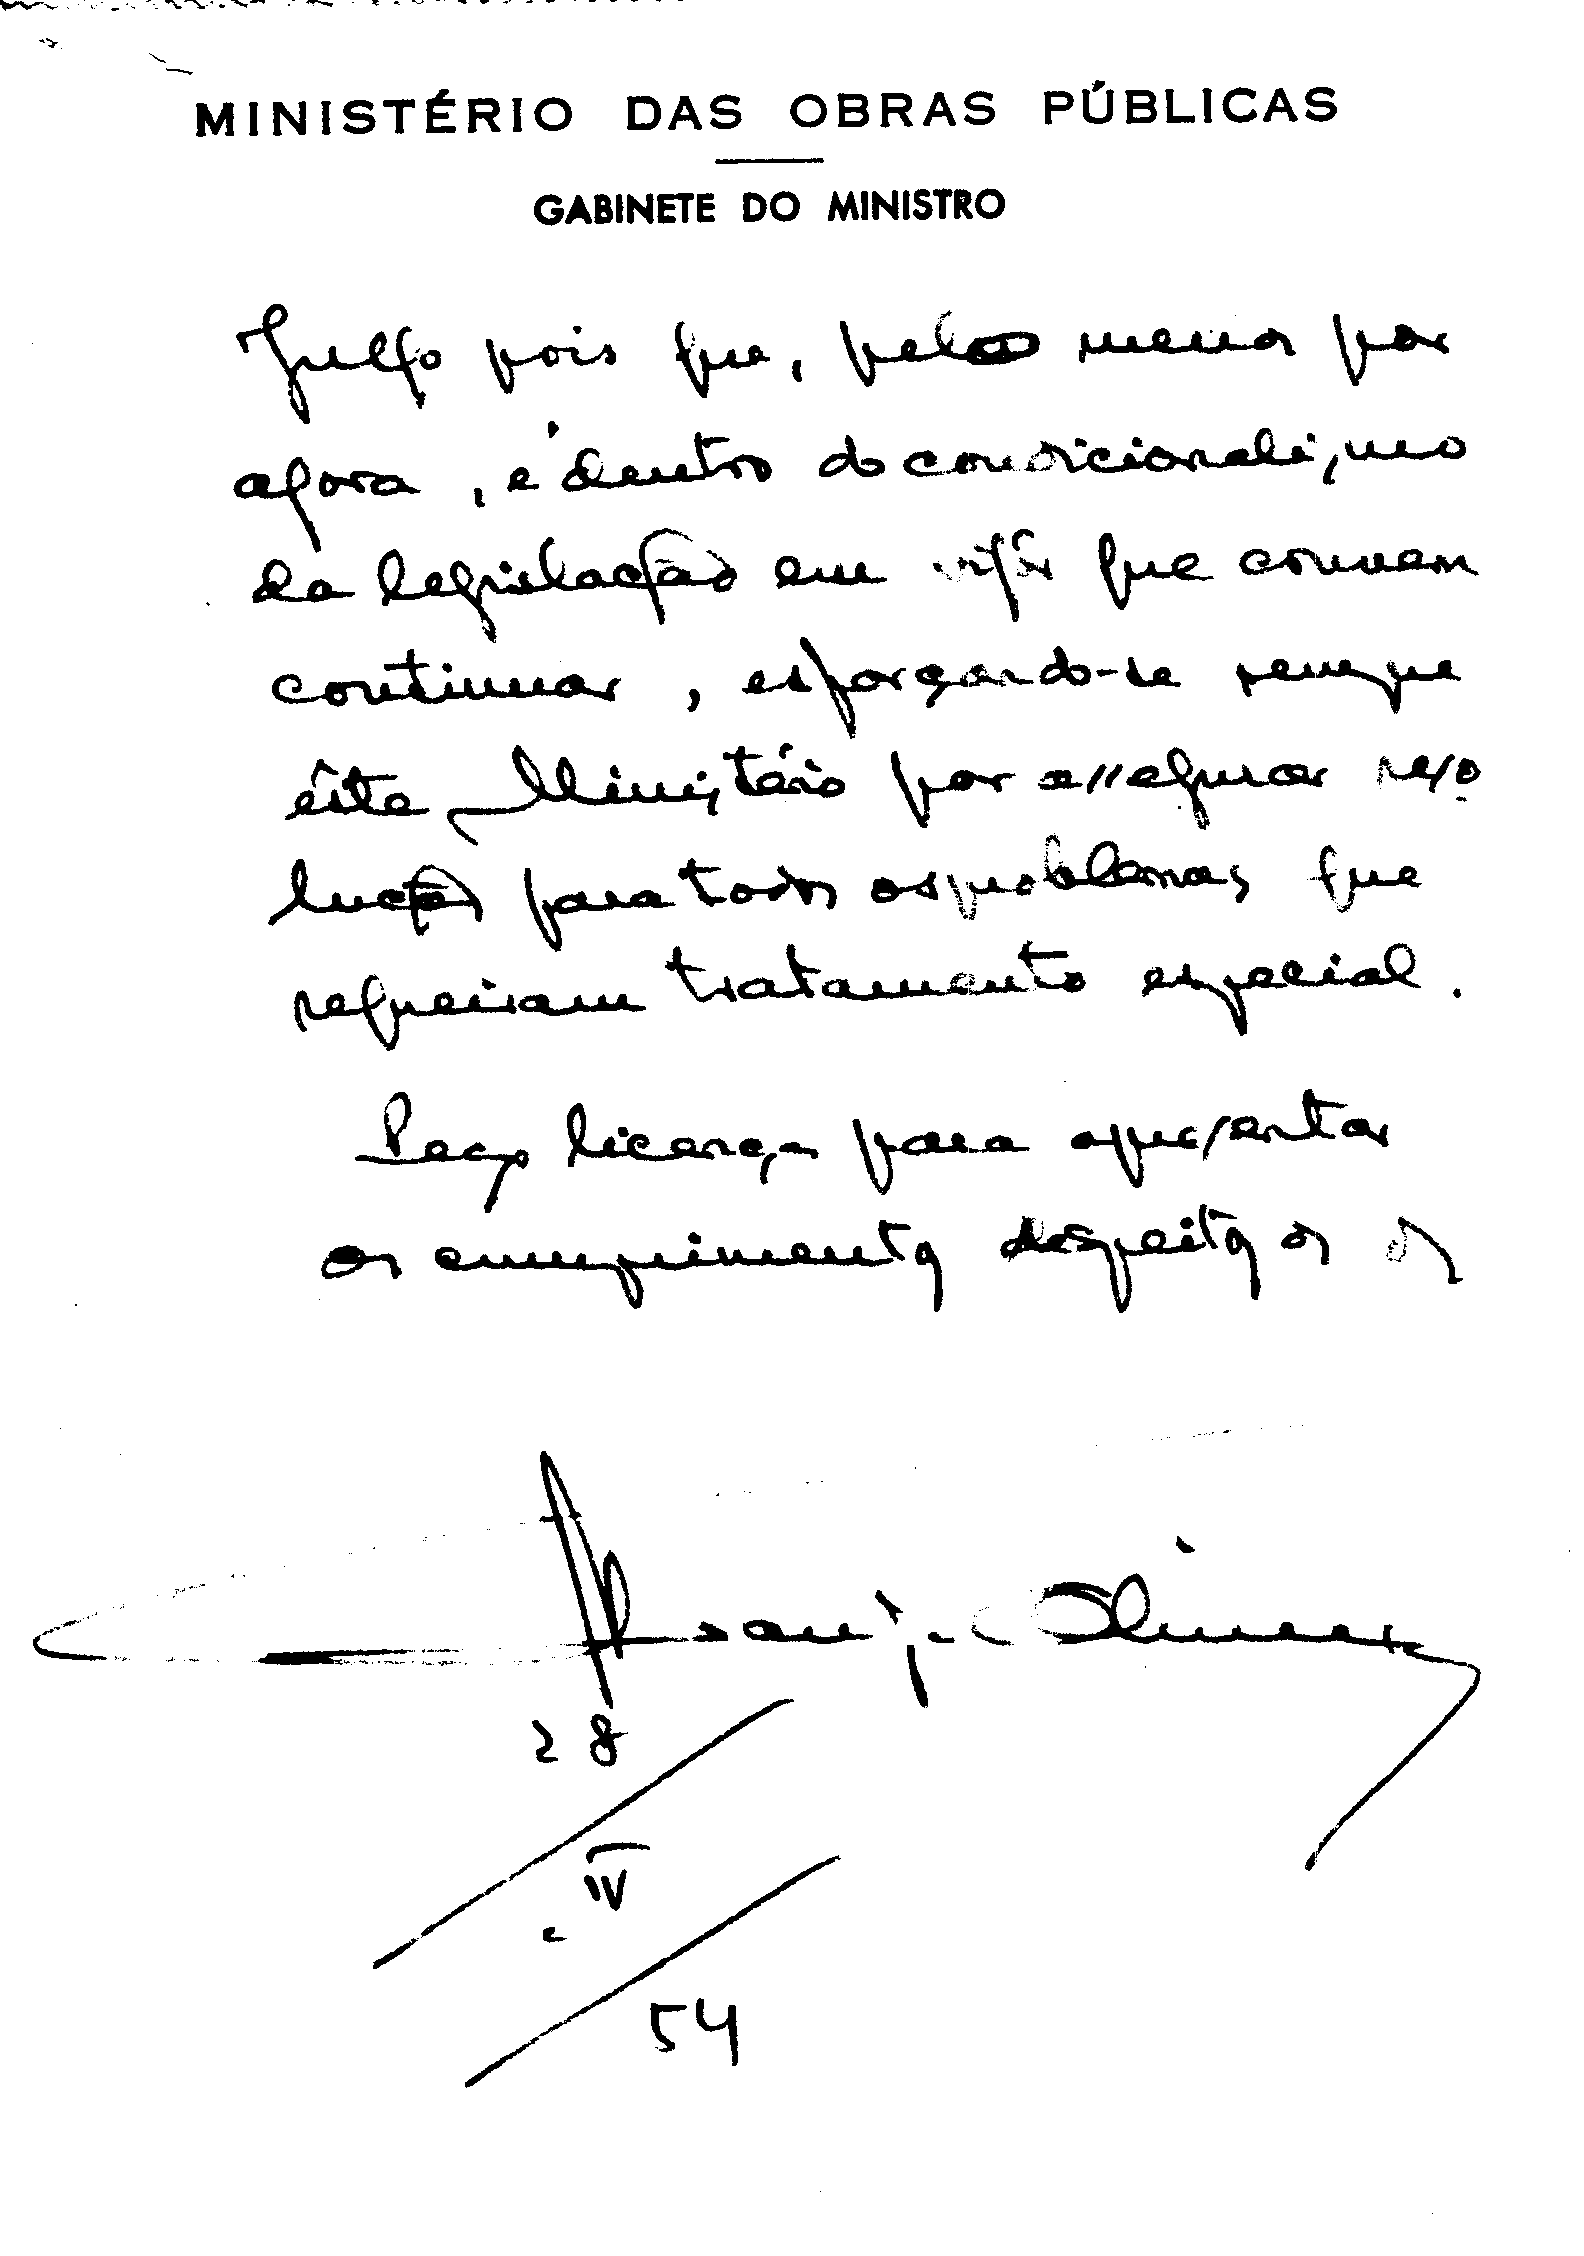 MINISTÉRIO DAS OBRAS PÚBLICAS
GABINETE DO MINISTRO
Julgo pois que, pelo menos por
agora, é dentro do condicionalismo
da legislação em vigôr que convem
continuar, esforçando-se sempre
êste Ministério por assegurar reso
lução para todos os problemas que
requeiram tratamento especial.
Peço licença para apresentar
os cumprimentos respeitosos
Araujo Oliveira
28
IV
54